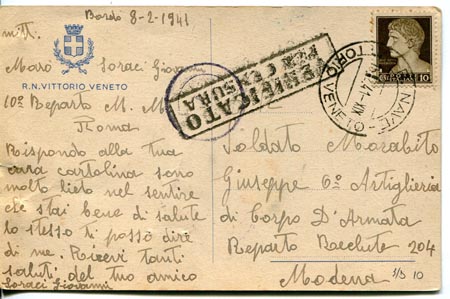 Bordo 8-2-1941
mitt.
Marò Soraci Giovanni
R.N. VITTORIO VENETO
10º Reparto M. M.
Roma
Rispondo alla tua
cara cartolina sono
molto lieto nel sentire
che stai bene di salute
lo stesso ti posso dire
di me. Ricevi tanti
saluti del tuo amico
Soraci Giovanni
VERIFICATO
PER CENSURA
10
VITTORIO VENETO
Soldato Marabito
Giuseppe 6º Artiglieria
di Corpo D'Armata
Reparto Reclute 204
Modena